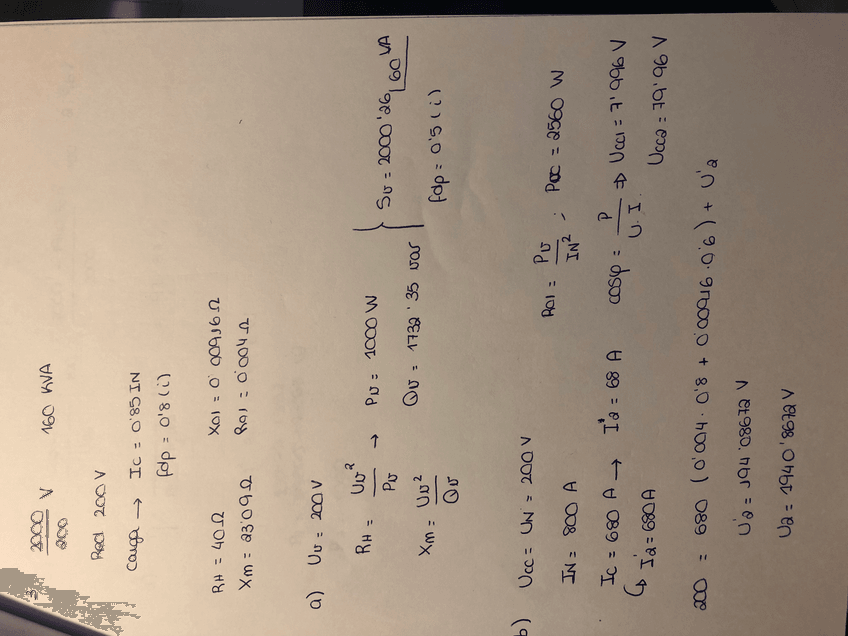 3 2000/200 V 160 KVA
Red 200 V
Carga → Ic = 0'85 IN
fdp = 0'8 (i)
RH = 40 Ω Xθ1 = 0'00916 Ω
Xm = 23'09 Ω Rθ1 = 0'004 Ω
a) Uν = 200 V
RH = Uν²/Pν → Pν = 1000 W
Xm = Uν²/Qν Qν = 1732'35 var
} Sν = 2000'26 |60 VA
fdp = 0'5 (i)
b) Ucc = UN = 200 V
IN = 800 A Rθ1 = Pν/IN² ; Pcc = 2560 W
Ic = 680 A → I*2 = 68 A cosφ = P/U.I. ⇒ Ucc1 = 7'996 V
↳ I'2 = 680A Ucc2 = 79'96 V
200 = 680 (0'004 · 0'8 + 0'00916 · 0'6) + U'2
U'2 = 194'08672 V
U2 = 1940'8672 V